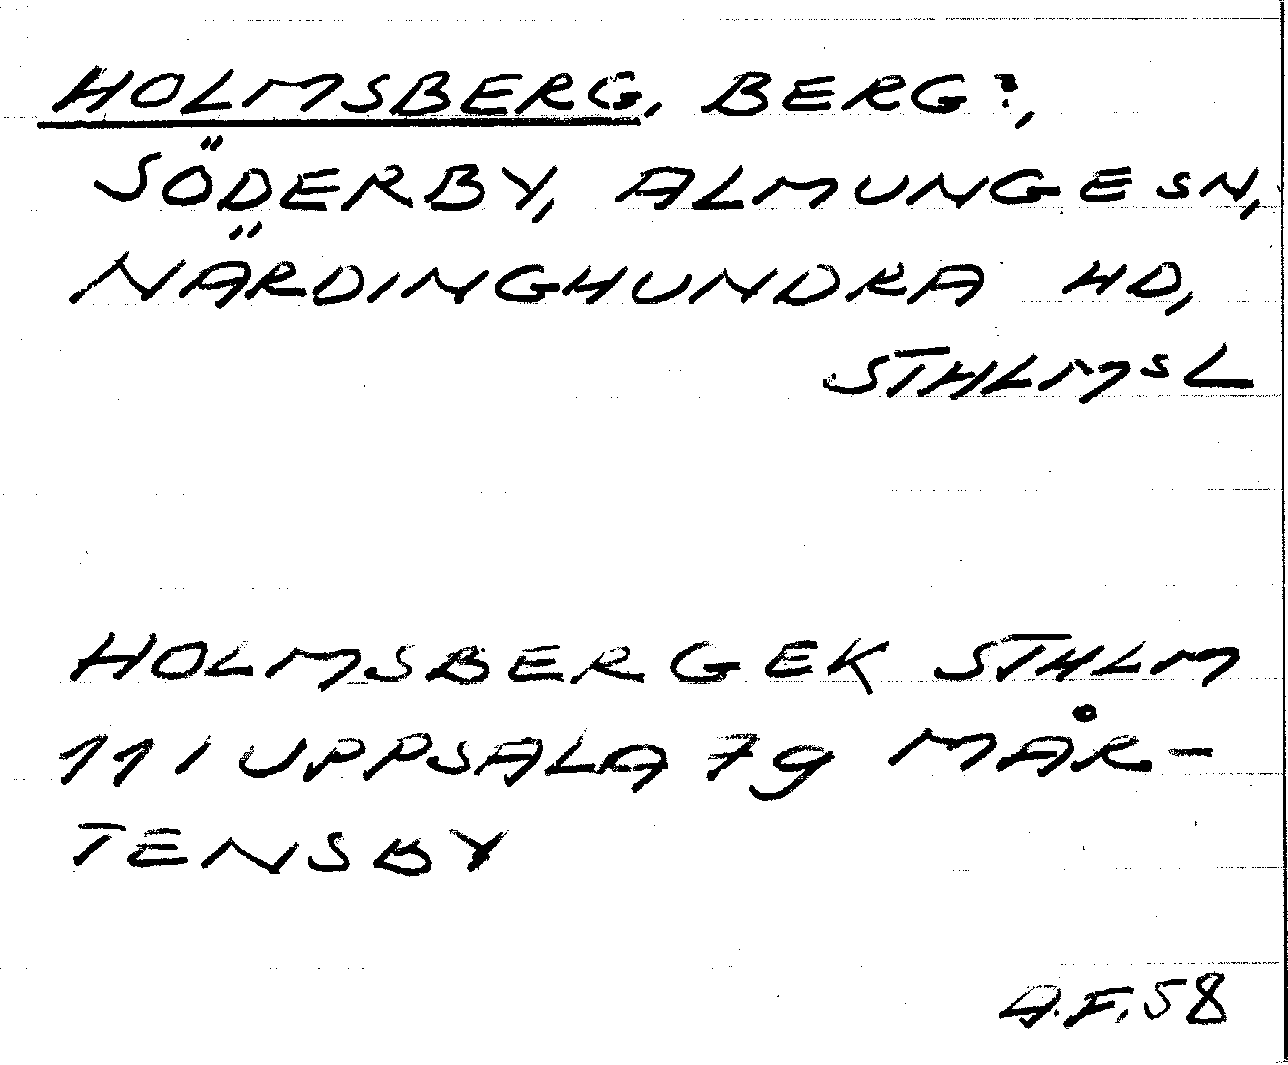 HOLMSBERG, BERG?,
SÖDERBY, ALMUNGE SN,
NÄRDINGHUNDRA HD,
STHLMS L
HOLMSBERG EK STHLM
111 UPPSALA 7g MÅR-
TENSBY
A.F. 58